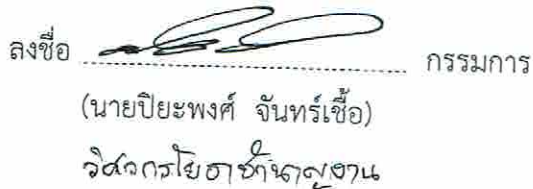 ลงชื่อ ........................................ กรรมการ
(นายปิยะพงศ์ จันทร์เชื้อ)
วิศวกรโยธาชำนาญงาน